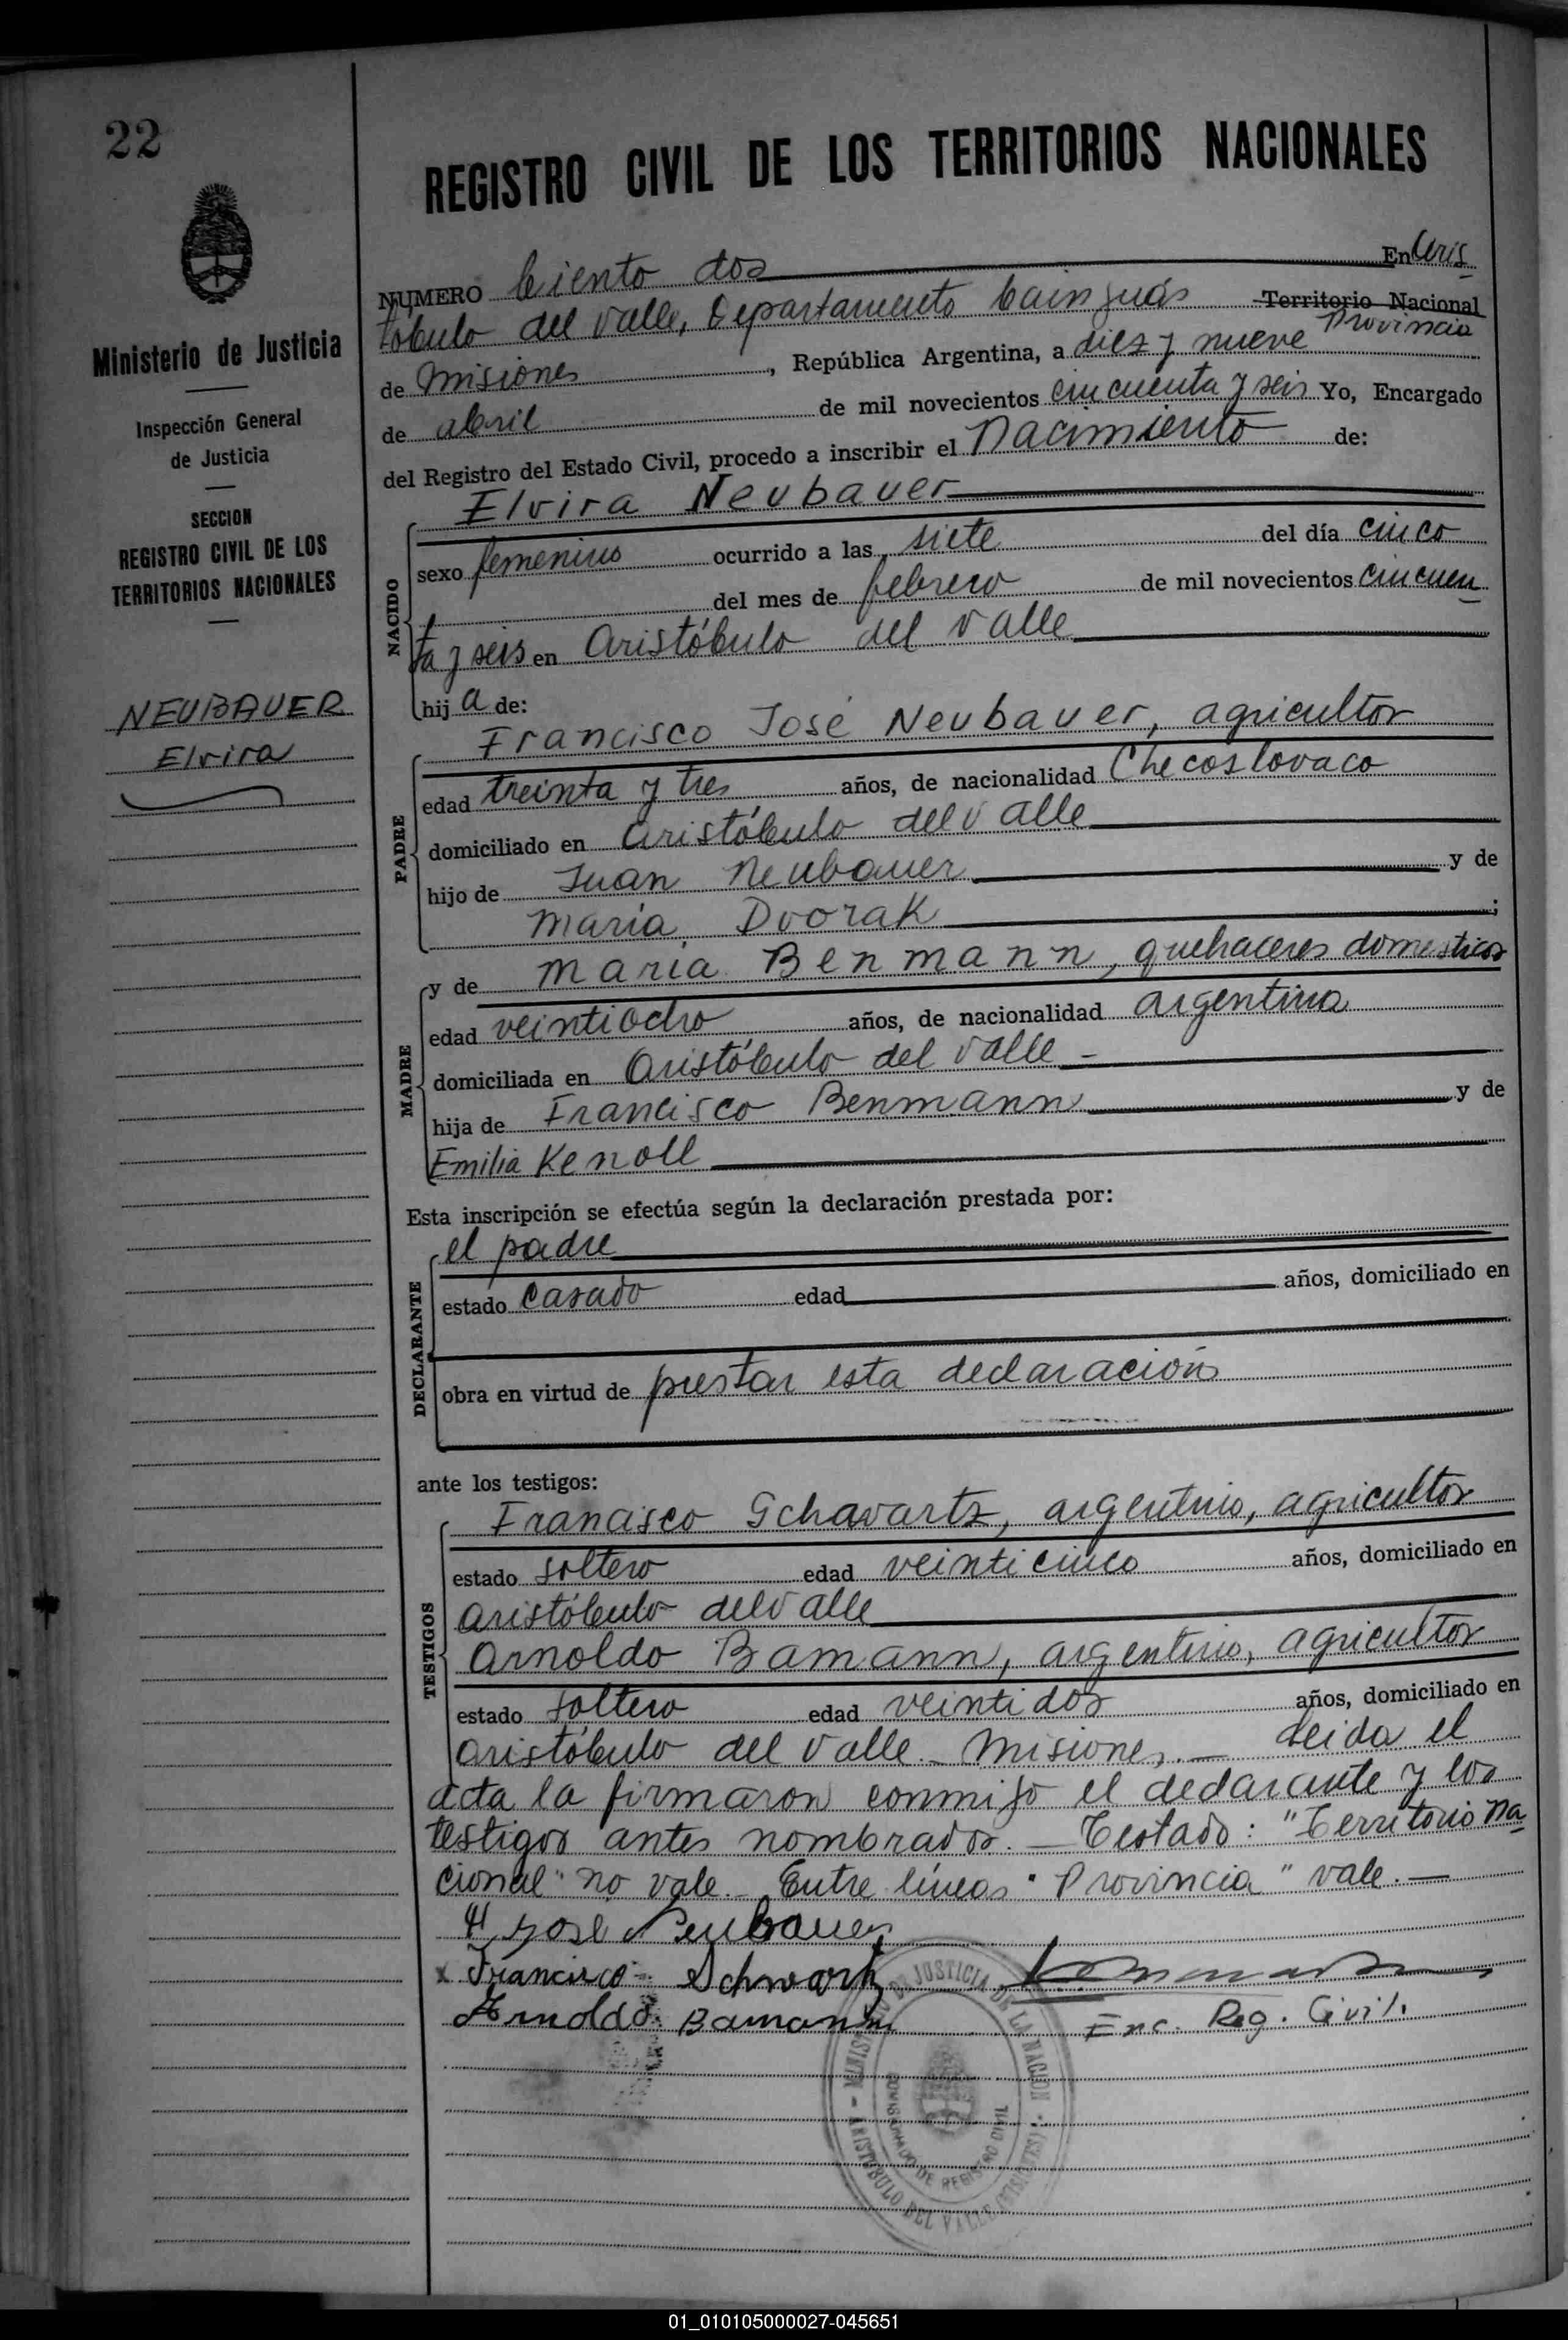 22
Ministerio de Justicia
Inspección General
de Justicia
SECCION
REGISTRO CIVIL DE LOS
TERRITORIOS NACIONALES
NEUBAUER
Elvira
REGISTRO CIVIL DE LOS TERRITORIOS NACIONALES
NUMERO Ciento dos En Aris
tóbulo del Valle, Departamento Cainguás Territorio Nacional
Provincia
de Misiones, República Argentina, a diez y nueve
de abril de mil novecientos cincuenta y seis Yo, Encargado
del Registro del Estado Civil, procedo a inscribir el Nacimiento de:
NACIDO
Elvira Neubauer
sexo femenino ocurrido a las siete del día cinco
del mes de febrero de mil novecientos cincuen
ta y seis en Aristóbulo del Valle
hija de:
PADRE
Francisco José Neubauer, agricultor
edad treinta y tres años, de nacionalidad Checoslovaco
domiciliado en Aristóbulo del Valle
hijo de Juan Neubauer y de
María Dvorak;
MADRE
y de María Benmann, quehaceres domesticos
edad veintiocho años, de nacionalidad argentina
domiciliada en Aristóbulo del Valle -
hija de Francisco Benmann y de
Emilia Kenoll
Esta inscripción se efectúa según la declaración prestada por:
DECLARANTE
el padre
estado casado edad años, domiciliado en
obra en virtud de prestar esta declaración
ante los testigos:
TESTIGOS
Francisco Schavartz, argentino, agricultor
estado soltero edad veinticinco años, domiciliado en
Aristóbulo del Valle
Arnoldo Bamann, argentino, agricultor
estado soltero edad veintidos años, domiciliado en
Aristóbulo del Valle.- Misiones.- Leida el
acta la firmaron conmigo el declarante y los
testigos antes nombrados.- Testado: "Territorio Na
cional" no vale.- Entre líneas "Provincia" vale.-
José Neubauer
x Francisco Schwartz
Arnoldo Bamann
Enc. Reg. Civil.
MINISTERIO DE JUSTICIA DE LA NACION
ARISTOBULO DEL VALLE (MISIONES)
DE REGISTRO CIVIL
01_010105000027-045651